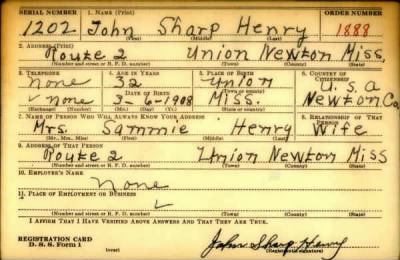 SERIAL NUMBER 1. NAME (Print) ORDER NUMBER
1202 John Sharp Henry 1888
(First) (Middle) (Last)
2. ADDRESS (Print)
Route 2 Union Newton Miss.
(Number and street or R. F. D. number) (Town) (County) (State)
3. TELEPHONE 4. AGE IN YEARS 5. PLACE OF BIRTH 6. COUNTRY OF CITIZENSHIP
None 32 Union U.S.a
DATE OF BIRTH
None 3-6-1908 Miss. Newton Co
(Exchange) (No.) (Mo.) (Day) (Yr.) (State or country)
7. NAME OF PERSON WHO WILL ALWAYS KNOW YOUR ADDRESS 8. RELATIONSHIP OF THAT PERSON
Mrs. Sammie Henry Wife
(Mr., Mrs., Miss) (First) (Middle) (Last)
9. ADDRESS OF THAT PERSON
Route 2 Union Newton Miss
(Number and street or R. F. D. number) (Town) (County) (State)
10. EMPLOYER'S NAME
None
11. PLACE OF EMPLOYMENT OR BUSINESS
(Number and street or R. F. D. number) (Town) (County) (State)
I AFFIRM THAT I HAVE VERIFIED ABOVE ANSWERS AND THAT THEY ARE TRUE.
REGISTRATION CARD
D. S. S. Form 1 (over) John Sharp Henry
(Registrant's signature)